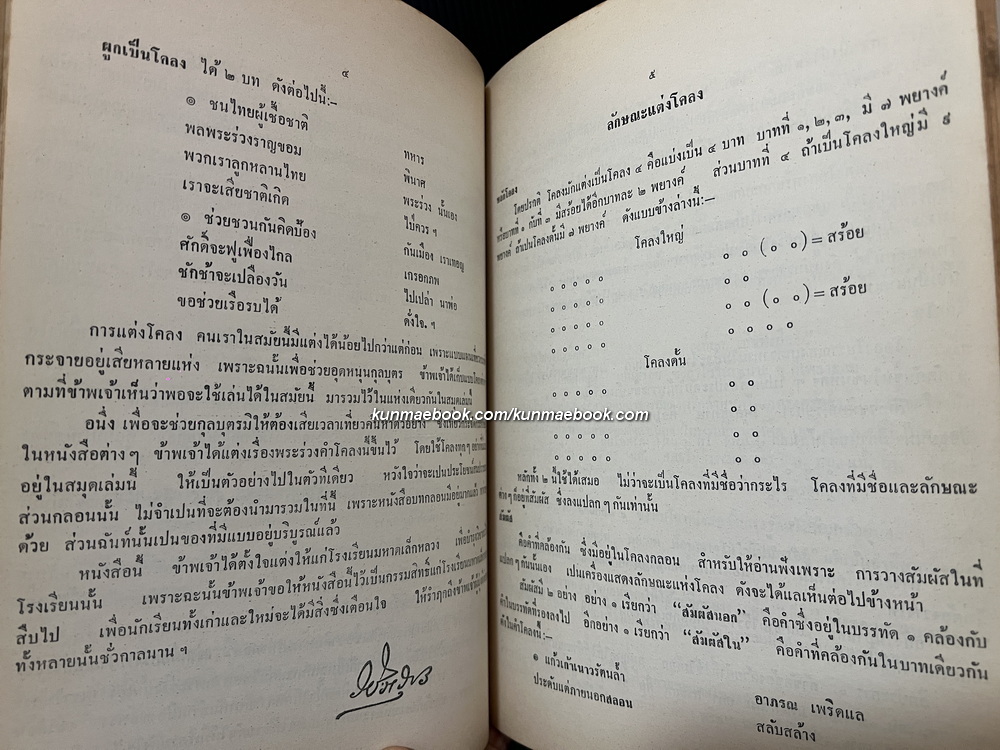 ๔
ผูกเป็นโคลง ได้ ๒ บท ดังต่อไปนี้:–
๏ ชนไทยผู้เชื้อชาติ ทหาร
พลพระร่วงราญขอม พินาศ
พวกเราลูกหลานไทย พระร่วง นั้นเอง
เราจะเสียชาติเกิด ไป่ควร ฯ
๏ ช่วยชวนกันคิดป้อง กันเมือง เราเทอญ
ศักดิ์จะฟูเฟื่องไกล เกรอกภพ
ชักช้าจะเปลืองวัน ไปเปล่า นาพ่อ
ขอช่วยเรือรบได้ ดั่งใจ. ฯ
การแต่งโคลง คนเราในสมัยนี้มีแต่งได้น้อยไปกว่าแต่ก่อน เพราะแบบแผน
กระจายอยู่เสียหลายแห่ง เพราะฉนั้นเพื่อช่วยอุดหนุนกุลบุตร ข้าพเจ้าได้เก็บแบบโคลง
ตามที่ข้าพเจ้าเห็นว่าพอจะใช้เล่นได้ในสมัยนี้ มารวมไว้ในแห่งเดียวกันในสมุดเล่มนี้
อนึ่ง เพื่อจะช่วยกุลบุตรมิให้ต้องเสียเวลาเที่ยวค้นหาตัวอย่าง ซึ่งเที่ยวกระจาย
ในหนังสือต่างๆ ข้าพเจ้าได้แต่งเรื่องพระร่วงคำโคลงนี้ขึ้นไว้ โดยใช้โคลงทุกๆอย่าง
อยู่ในสมุดเล่มนี้ ให้เป็นตัวอย่างไปในตัวทีเดียว หวังใจว่าจะเป็นประโยชน์
ส่วนกลอนนั้น ไม่จำเป็นที่จะต้องนำมารวมในที่นี้ เพราะหนังสือบทกลอนมีอยู่มากแล้ว
ด้วย ส่วนฉันท์นั้นเป็นของที่มีแบบอยู่บริบูรณ์แล้ว
หนังสือนี้ ข้าพเจ้าได้ตั้งใจแต่งให้แก่โรงเรียนมหาดเล็กหลวง เพื่อบำรุง
โรงเรียนนั้น เพราะฉะนั้นข้าพเจ้าขอให้หนังสือนี้ไว้เป็นกรรมสิทธิ์แก่โรงเรียนมหาดเล็ก
สืบไป เพื่อนักเรียนทั้งเก่าและใหม่จะได้มีสิ่งซึ่งเตือนใจ ให้รำฦกถึงข้าพเจ้า
ทั้งหลายนั้นชั่วกาลนาน ฯ
kunmaebook.com/kunmaebook.com
๕
ลักษณะแต่งโคลง
ผังโคลง
โดยปรกติ โคลงมักแต่งเป็นโคลง ๔ คือแบ่งเป็น ๔ บาท บาทที่ ๑, ๒, ๓, มี ๗ พยางค์
หรือบาทที่ ๑ กับที่ ๓ มีสร้อยได้อีกบาทละ ๒ พยางค์ ส่วนบาทที่ ๔ ถ้าเป็นโคลงใหญ่มี ๙
พยางค์ ถ้าเป็นโคลงดั้นมี ๗ พยางค์ ดังแบบข้างล่างนี้:–
โคลงใหญ่
๐ ๐ ๐ ๐ ๐ ๐ ๐ (๐ ๐) = สร้อย
๐ ๐ ๐ ๐ ๐ ๐ ๐
๐ ๐ ๐ ๐ ๐ ๐ ๐ (๐ ๐) = สร้อย
๐ ๐ ๐ ๐ ๐ ๐ ๐ ๐ ๐
โคลงดั้น
๐ ๐ ๐ ๐ ๐ ๐ ๐
๐ ๐ ๐ ๐ ๐ ๐ ๐
๐ ๐ ๐ ๐ ๐ ๐ ๐
๐ ๐ ๐ ๐ ๐ ๐ ๐
หลักทั้ง ๒ นี้ใช้ได้เสมอ ไม่ว่าจะเป็นโคลงที่มีชื่อว่ากระไร โคลงที่มีชื่อและลักษณะ
ต่างๆ ก็อยู่ที่สัมผัส ซึ่งลงแปลกๆ กันเท่านั้น
สัมผัส
คือคำที่คล้องกัน ซึ่งมีอยู่ในโคลงกลอน สำหรับให้อ่านฟังเพราะ การวางสัมผัสในที่
แปลกๆ กันนั้นเอง เป็นเครื่องแสดงลักษณะแห่งโคลง ดังจะได้แลเห็นต่อไปข้างหน้า
สัมผัสมี ๒ อย่าง อย่าง ๑ เรียกว่า “สัมผัสนอก” คือคำซึ่งอยู่ในบรรทัด ๑ คล้องกับ
คำในบรรทัดที่รองลงไป อีกอย่าง ๑ เรียกว่า “สัมผัสใน” คือคำที่คล้องกันในบาทเดียวกัน
คำในคำโคลงนี้:–
๏ แก้วเก้าเนาวรัตนล้ำ อาภรณ เพริดแล
ประดับแต่ภายนอกสลอน สลับสล้าง